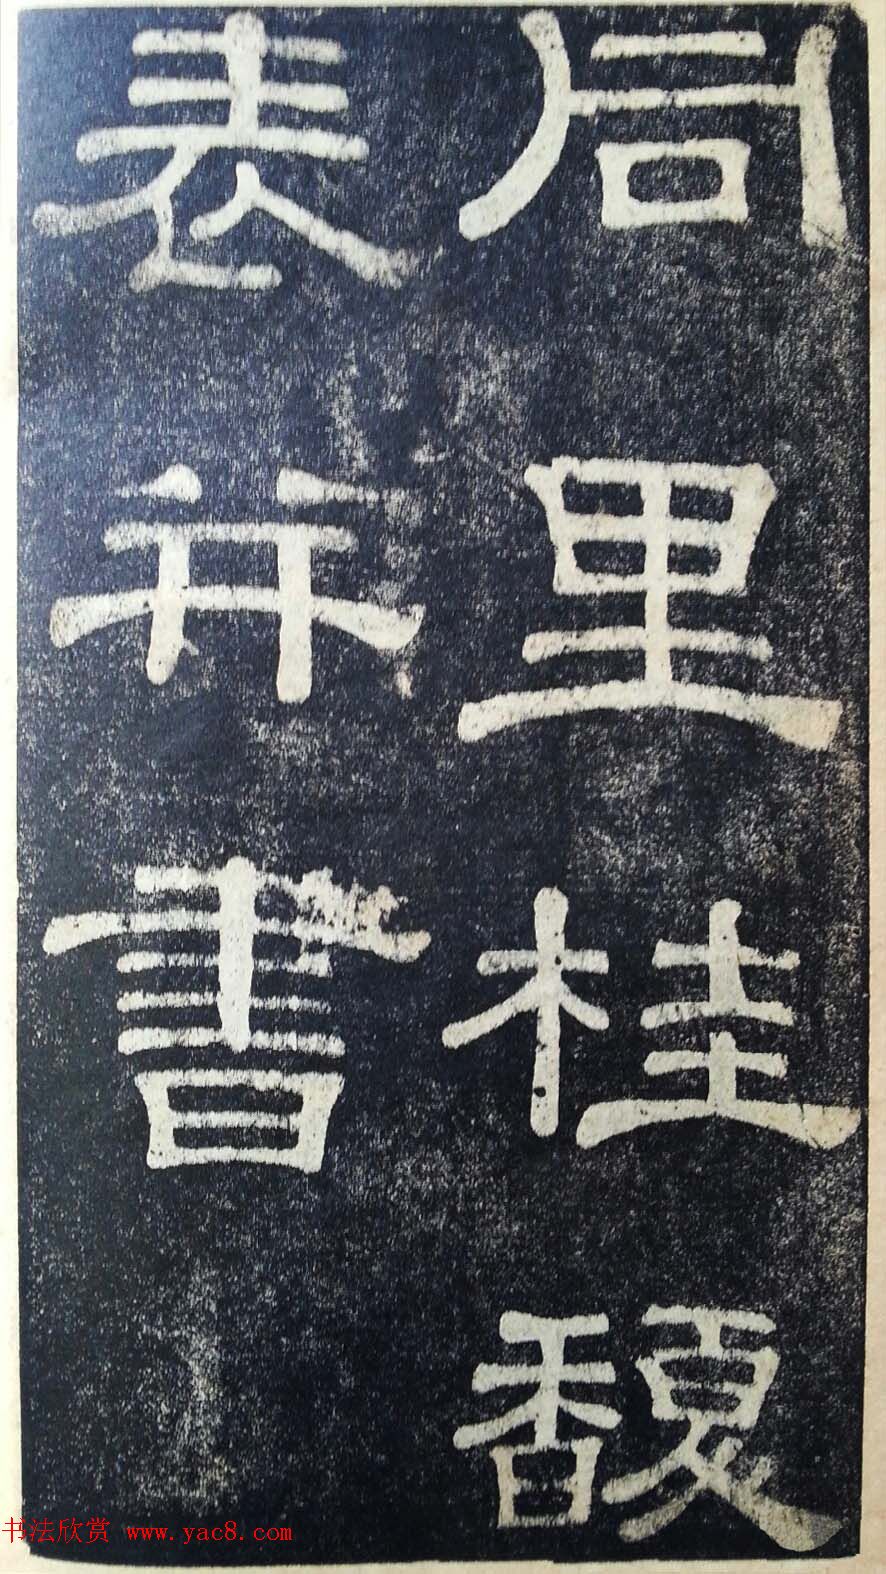 同里桂馥
表并書
书法欣赏 www.yac8.com